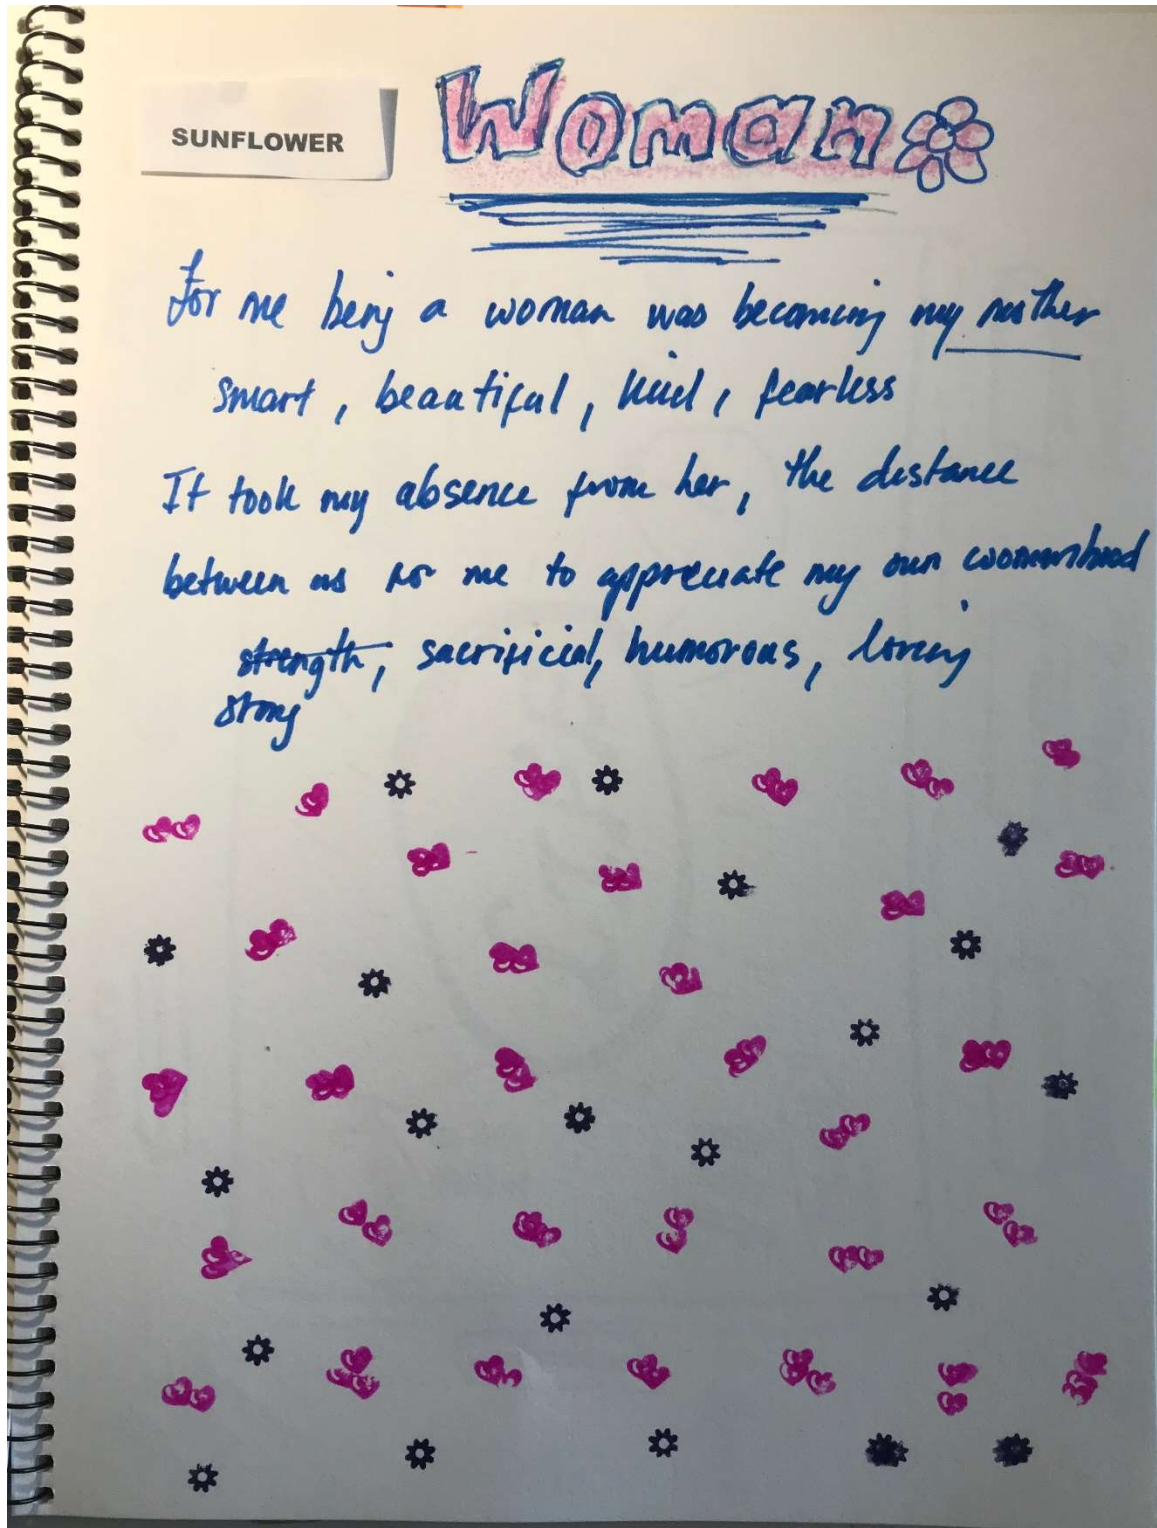 SUNFLOWER
Woman
For me being a woman was becoming my mother
smart, beautiful, kind, fearless
It took my absence from her, the distance
between us for me to appreciate my own womanhood
strength, sacrificial, humorous, loving
strong